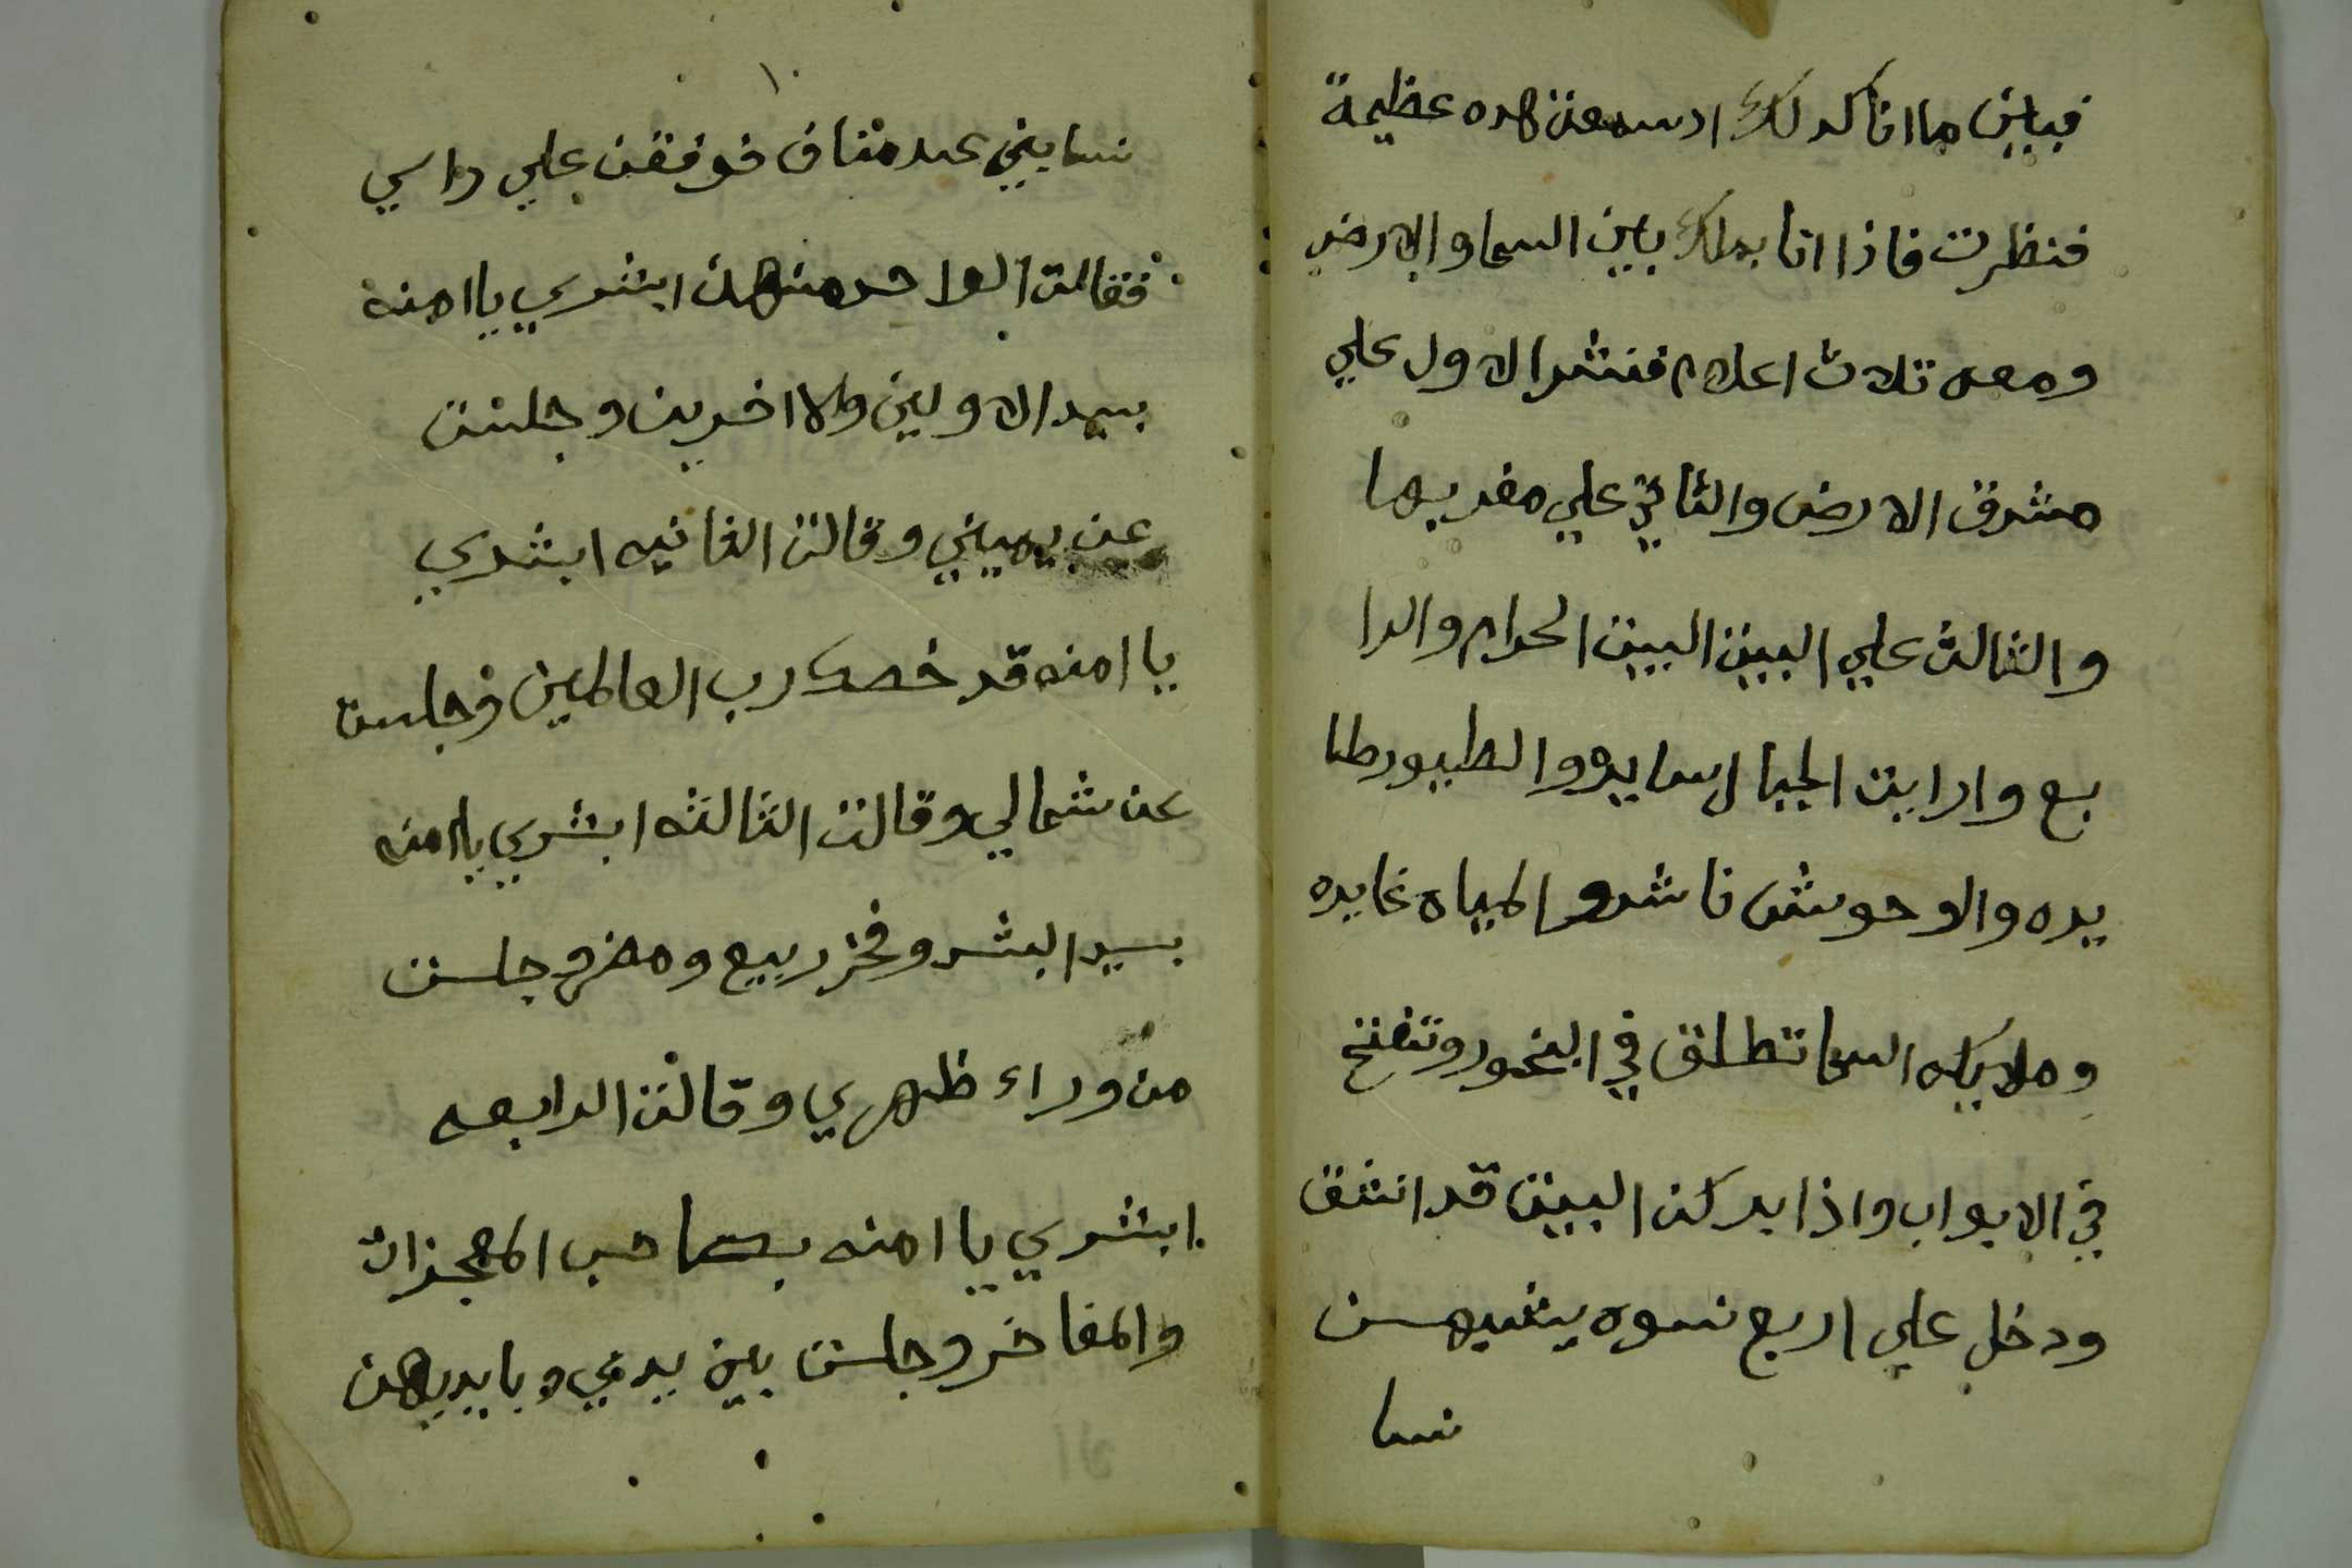 فبابين ما انا كدلك ادسمعت هده عظيمة
فنظرت فاذا انا بملك بين السما والارض
ومعه تلاث اعلام فنشر الاول علي
مشرق الارض والثاني علي مغربها
والثالث علي البيت البيت الحرام والرا
بع وارايت الجبال سايره والطيور طا
يره والوحوش ناشره المياه غايره
وملايكه السما تطلق في البخور وتفتح
في الابواب واذا بركن البيت قد انشق
ودخل علي اربع نسوه يشبهن
نسا
١٠
نسا بني عبد مناف فوقفن علي راسي
فقالت الواحده منهن ابشري يا امنه
بسيد الاولين والاخرين وجلست
عن يميني وقالت الثانيه ابشري
يا امنه قد خصك رب العالمين وجلست
عن شمالي وقالت الثالثه ابشري يا امنه
بسيد البشر وفخر ربيع ومضر وجلست
من وراء ظهري وقالت الرابعه
ابشري يا امنه بصاحب المعجزات
والمفاخر وجلست بين يدي وبايديهن